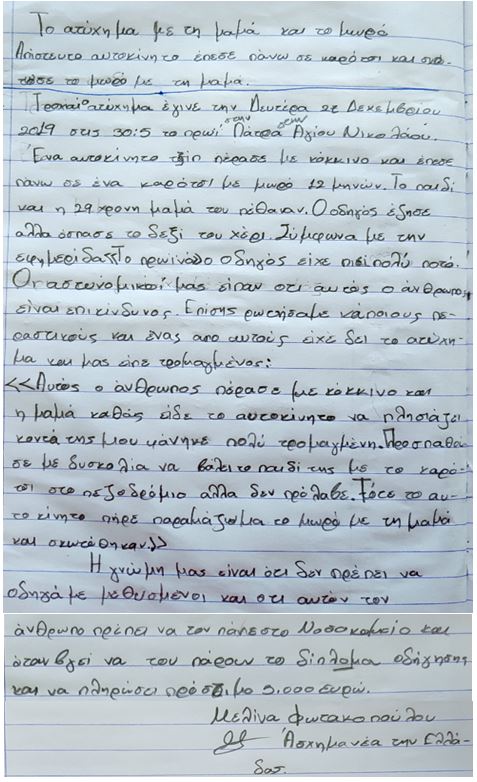 Το ατύχημα με τη μαμά και το μωρό
Απίστευτο αυτοκίνητο έπεσε πάνω σε καρότσι και σκό-
τωσε το μωρό με τη μαμά.
Τροχαίο ατύχημα έγινε την Δευτέρα 2 Δεκεμβρίου
2019 στις 30:5 το πρωί στην Πάτρα στην Αγίου Νικολάου.
Ένα αυτοκίνητο τζιπ πέρασε με κόκκινο και έπεσε
πάνω σε ένα καρότσι με μωρό 12 μηνών. Το παιδί
και η 29χρονη μαμά του πέθαναν. Ο οδηγός έζησε
αλλα έσπασε το δεξί του χέρι. Σύμφωνα με την
εφημερίδα <<Το πρωινό>> ο οδηγός είχε πιεί πολύ ποτό.
Οι αστυνομικοί μας είπαν οτι αυτός ο άνθρωπος
είναι επικίνδυνος. Επίσης ρωτήσαμε κάποιους πε-
ραστικούς και ένας απο αυτούς είχε δει το ατύχη-
μα και μας είπε τρομαγμένος:
<<Αυτός ο άνθρωπος πέρασε με κόκκινο και
η μαμά καθώς είδε το αυτοκίνητο να πλησιάζει
κοντά της μου φάνηκε πολύ τρομαγμένη. Προσπάθη
σε με δυσκολία να βάλει το παιδί της με το καρό-
τσι στο πεζοδρόμιο αλλα δεν πρόλαβε. Τότε το αυ-
το κίνητο πήρε παραμάζωμα το μωρό με τη μαμά
και σκωτόθηκαν.>>
Η γνώμη μας είναι ότι δεν πρέπει να
οδηγάμε μεθυσμένοι και οτι αυτόν τον
άνθρωπο πρέπει να τον πάνε στο Νοσοκομείο και
όταν βγεί να του πάρουν το δίπλομα οδήγησης
και να πληρώσει πρόστιμο 5.000 ευρώ.
Μελίνα Φωτακοπούλου
Άσχημα νέα την Ελλά-
δας